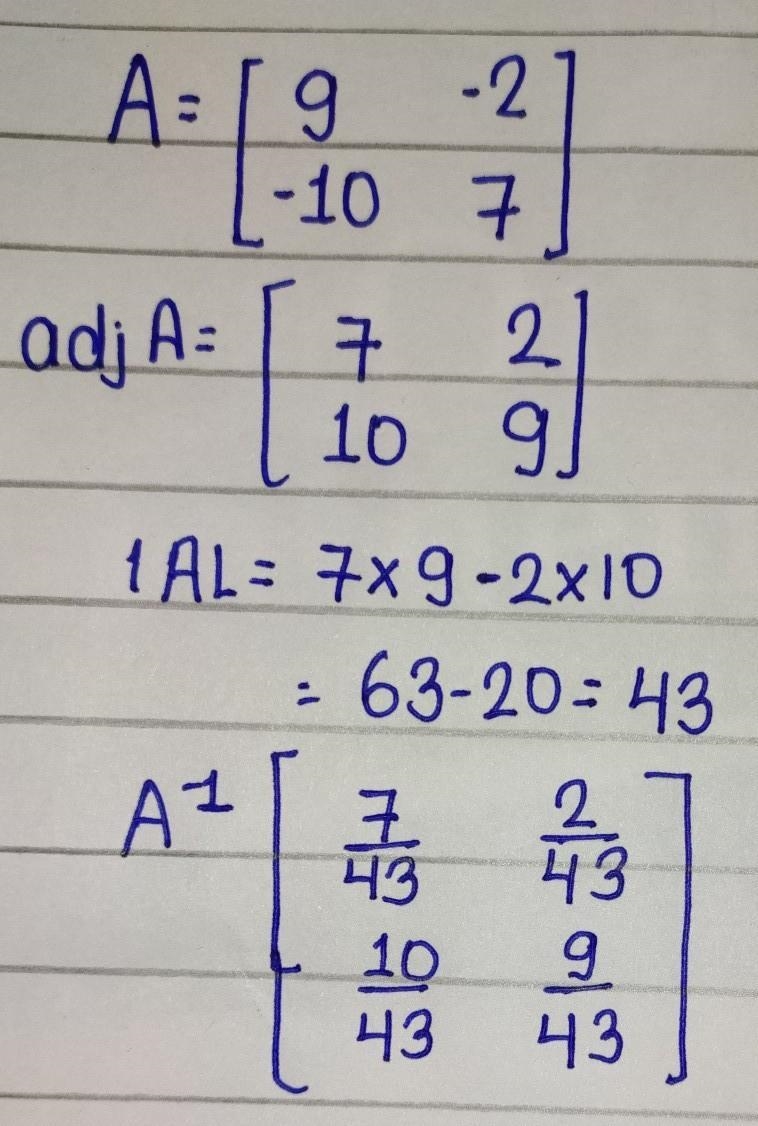 A = [ 9 -2
-10 7 ]
adj A = [ 7 2
10 9 ]
|A| = 7×9 - 2×10
= 63 - 20 = 43
A⁻¹ [ 7/43 2/43
10/43 9/43 ]